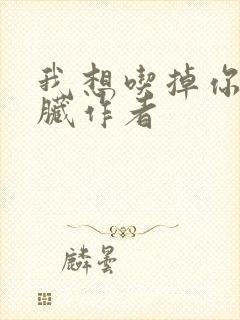 我想喫掉你
臟作者
麟曇